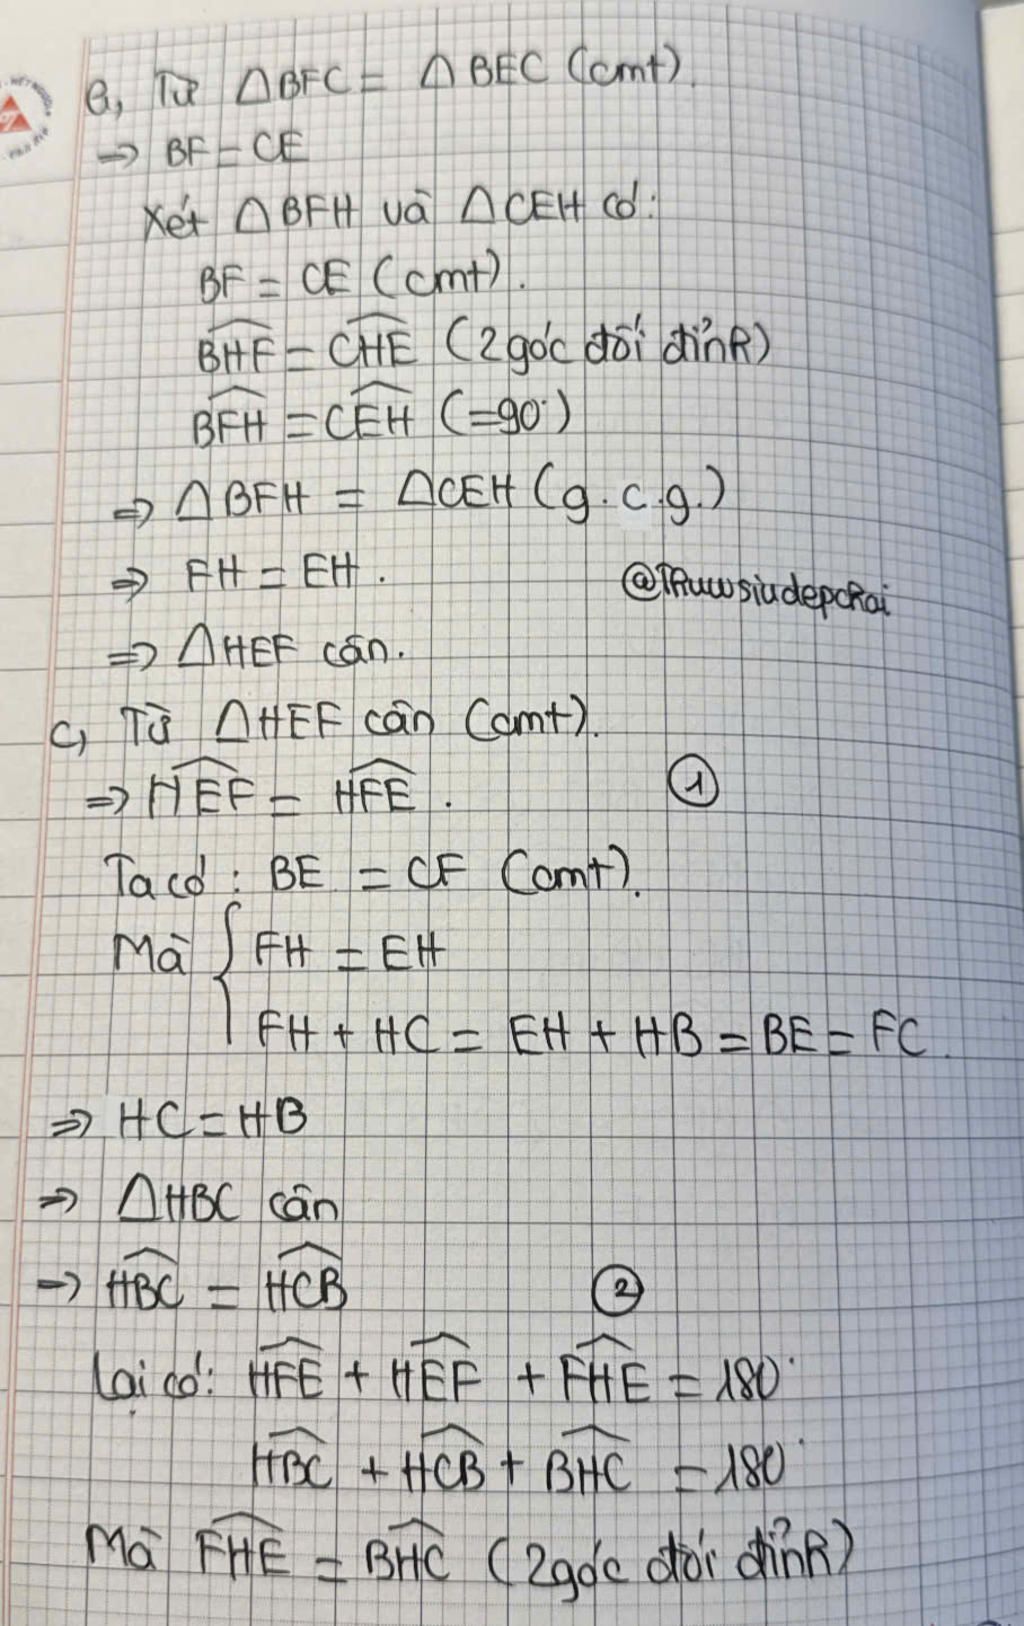 b, Từ △BFC = △BEC (cmt).
⇒ BF = CE
Xét △BFH và △CEH có:
BF = CE (cmt).
\widehat{BHF} = \widehat{CHE} (2 góc đối đỉnh)
\widehat{BFH} = \widehat{CEH} (=90°)
⇒ △BFH = △CEH (g.c.g.)
⇒ FH = EH.
@Thuwsiudepchai
⇒ △HEF cân.
c, Từ △HEF cân (cmt).
⇒ \widehat{HEF} = \widehat{HFE}. ①
Ta có: BE = CF (cmt).
Mà { FH = EH
FH + HC = EH + HB = BE = FC.
⇒ HC = HB
⇒ △HBC cân
⇒ \widehat{HBC} = \widehat{HCB} ②
Lại có: \widehat{HFE} + \widehat{HEF} + \widehat{FHE} = 180°
\widehat{HBC} + \widehat{HCB} + \widehat{BHC} = 180°
Mà \widehat{FHE} = \widehat{BHC} (2 góc đối đỉnh)